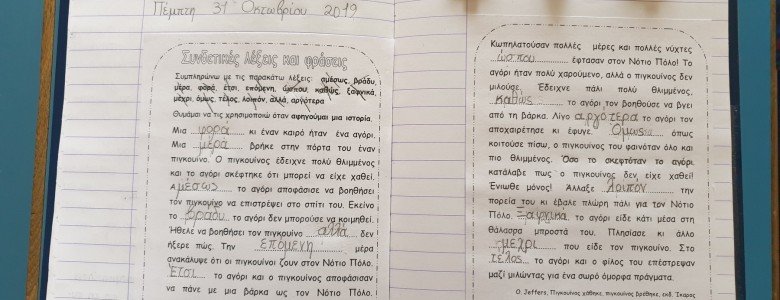 Πέμπτη 31 Οκτωβρίου 2019
Συνδετικές λέξεις και φράσεις
Συμπληρώνω με τις παρακάτω λέξεις: αμέσως, βράδυ,
μέρα, φορά, έτσι, επόμενη, ώσπου, καθώς, ξαφνικά,
μέχρι, όμως, τέλος, λοιπόν, αλλά, αργότερα
Θυμάμαι να τις χρησιμοποιώ όταν αφηγούμαι μια ιστορία.
Μια φορά κι έναν καιρό ήταν ένα αγόρι.
Μια μέρα βρήκε στην πόρτα του έναν
πιγκουίνο. Ο πιγκουίνος έδειχνε πολύ θλιμμένος
και το αγόρι σκέφτηκε ότι μπορεί να είχε χαθεί.
Αμέσως το αγόρι αποφάσισε να βοηθήσει
τον πιγκουίνο να επιστρέψει στο σπίτι του. Εκείνο
το βράδυ το αγόρι δεν μπορούσε να κοιμηθεί.
Ήθελε να βοηθήσει τον πιγκουίνο αλλά δεν
ήξερε πώς. Την επόμενη μέρα
ανακάλυψε ότι οι πιγκουίνοι ζουν στον Νότιο Πόλο.
Έτσι το αγόρι και ο πιγκουίνος αποφάσισαν
να πάνε με μια βάρκα ως τον Νότιο Πόλο.
Κωπηλατούσαν πολλές μέρες και πολλές νύχτες
ώσπου έφτασαν στον Νότιο Πόλο! Το
αγόρι ήταν πολύ χαρούμενο, αλλά ο πιγκουίνος δεν
μιλούσε. Έδειχνε πάλι πολύ θλιμμένος,
καθώς το αγόρι τον βοηθούσε να βγει
από τη βάρκα. Λίγο αργότερα το αγόρι τον
αποχαιρέτησε κι έφυγε. Όμως όπως
κοιτούσε πίσω, ο πιγκουίνος του φαινόταν όλο και
πιο θλιμμένος. Όσο το σκεφτόταν το αγόρι
κατάλαβε πως ο πιγκουίνος δεν είχε χαθεί!
Ένιωθε μόνος! Άλλαξε λοιπόν την
πορεία του κι έβαλε πλώρη πάλι για τον Νότιο
Πόλο. Ξαφνικά το αγόρι είδε κάτι μέσα στη
θάλασσα μπροστά του. Πλησίασε κι άλλο
μέχρι που είδε τον πιγκουίνο. Στο
τέλος το αγόρι και ο φίλος του επέστρεψαν
μαζί μιλώντας για ένα σωρό όμορφα πράγματα.
O. Jeffers, Πιγκουίνος χάθηκε, πιγκουίνος βρέθηκε, εκδ. Ίκαρος